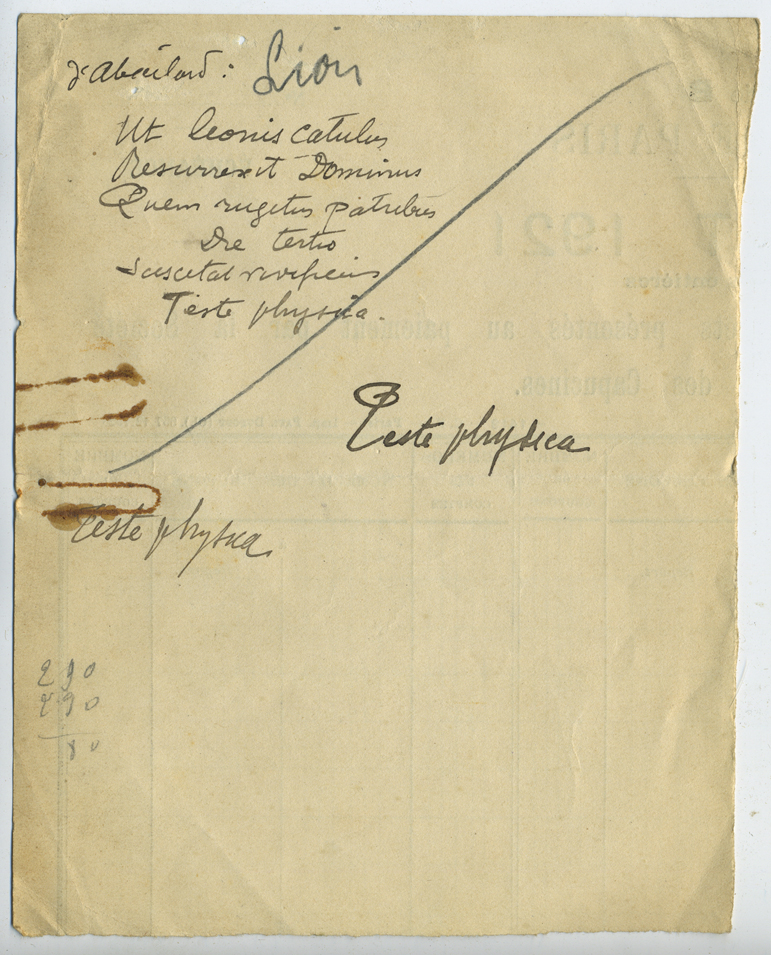 d'Abeilard : Lion
Ut leonis catulus
Resurrexit Dominus
Quem rugitus
Die tertio
Suscitat vivificus
Teste physica.
Teste physica
Teste physica.
290
290
80